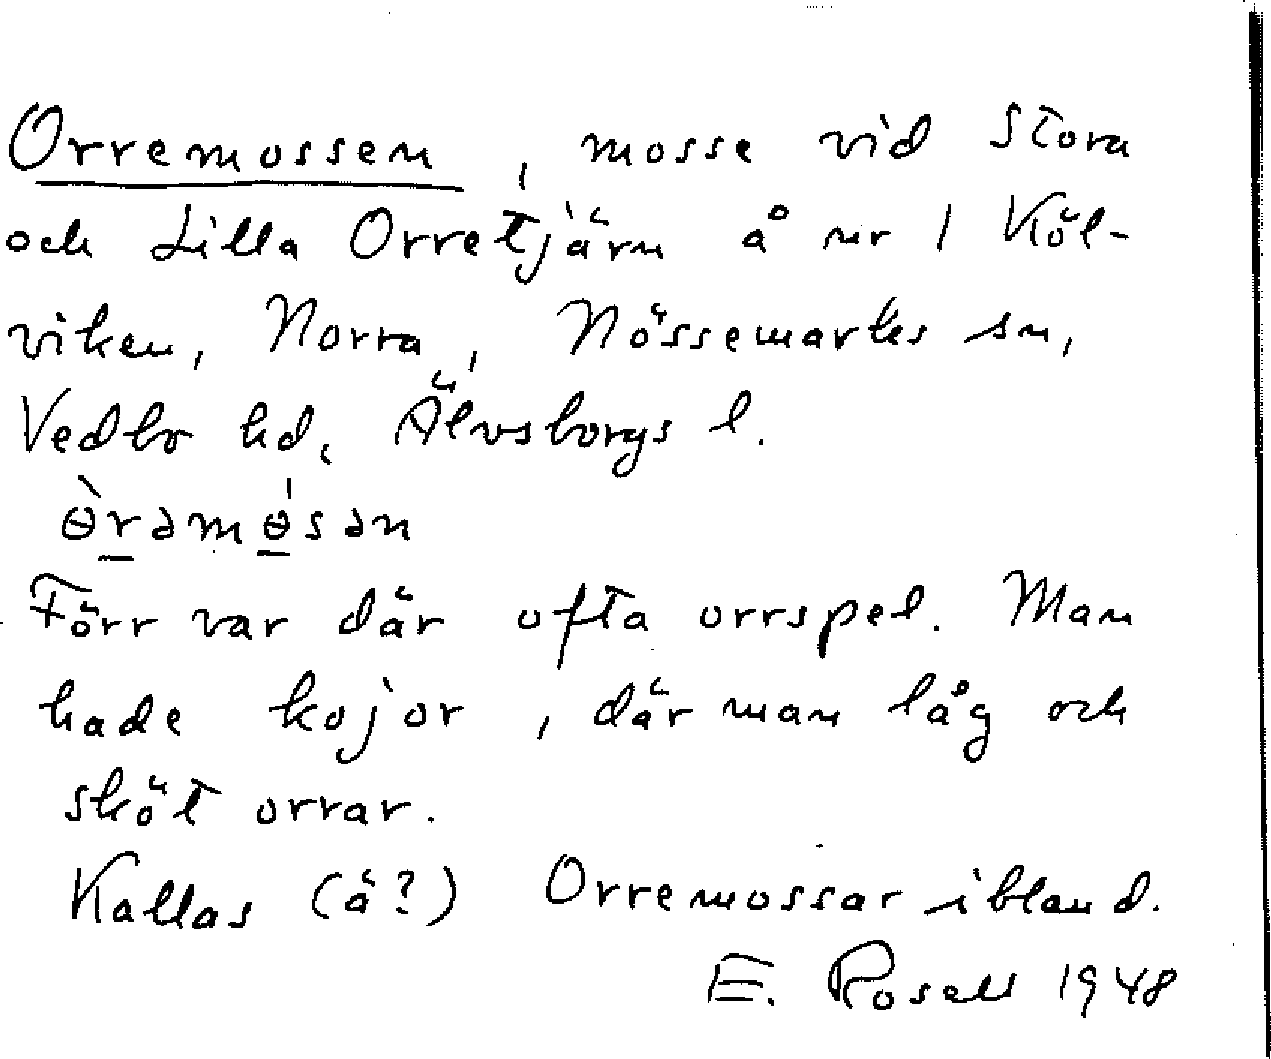 Orremossen, mosse vid Stora
och Lilla Orretjärn å nr 1 Köl-
viken, Norra, Nössemarks sn,
Vedbo hd, Älvsborgs l.
ɵ̀rəmɵ́sən
Förr var där ofta orrspel. Man
hade kojor, där man låg och
sköt orrar.
Kallas (ä?) Orremossar ibland.
E. Rosell 1948